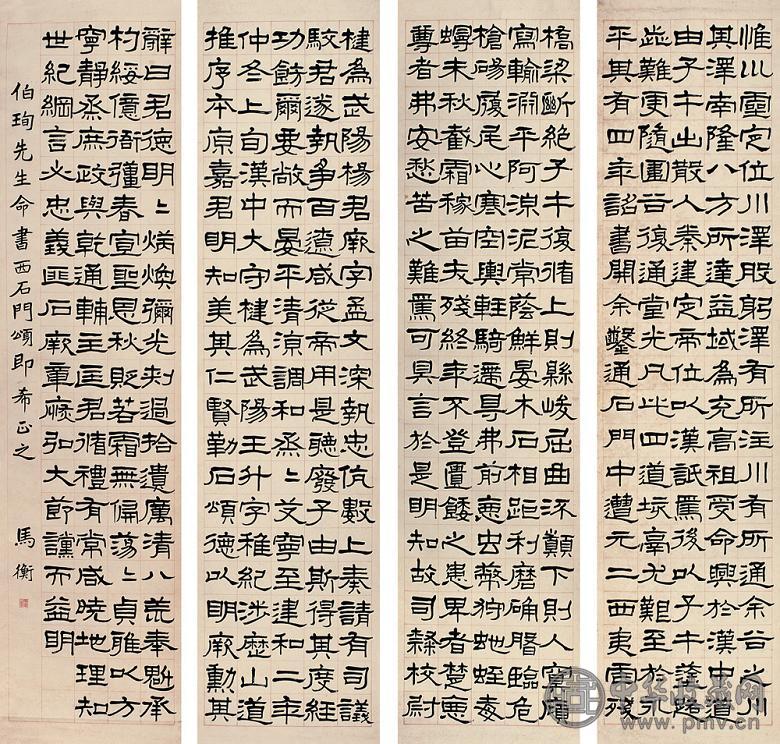 惟巛靈定位川澤股躬澤有所注川有所通余谷之川
其澤南隆八方所達益域為充高祖受命興於漢中道
由子午出散入秦建定帝位以漢詆焉後以子午塗路
歮難更隨圍谷復通堂光凡此四道垓鬲尤艱至於永
平其有四年詔書開余鑿通石門中遭元二西夷虐殘
橋梁斷絕子午復循上則縣峻屈曲流顛下則入冥廎
寫輸淵平阿涼泥常蔭鮮晏木石相距利磨确磐臨危
槍碭履尾心寒空輿輕騎遰㝵弗前惡虫蔽狩虵蛭毒
蟃未秋截霜稼苗夭殘終年不登匱餧之患卑者楚惡
尊者弗安愁苦之難焉可具言於是明知故司隸校尉
楗為武陽楊君厥字孟文深執忠伉數上奏請有司議
駮君遂執爭百遼咸從帝用是聽廢子由斯得其度經
功飭爾要敞而晏平清涼調和烝〻艾寧至建和二年
仲冬上旬漢中大守楗為武陽王升字稚紀涉歷山道
推序本原嘉君明知美其仁賢勒石頌德以明厥勳其
辭曰君德明〻炳煥彌光刺過拾遺厲清八荒奉魁承
杓綏億衙彊春宣聖恩秋貶若霜無偏蕩〻貞雅以方
寧靜烝庶政與乾通輔主匡君循禮有常咸曉地理知
世紀綱言必忠義匪石厥章恢弘大節讜而益明
伯珣先生命書西石門頌即希正之 馬衡
中华收藏网
www.pmv.cn